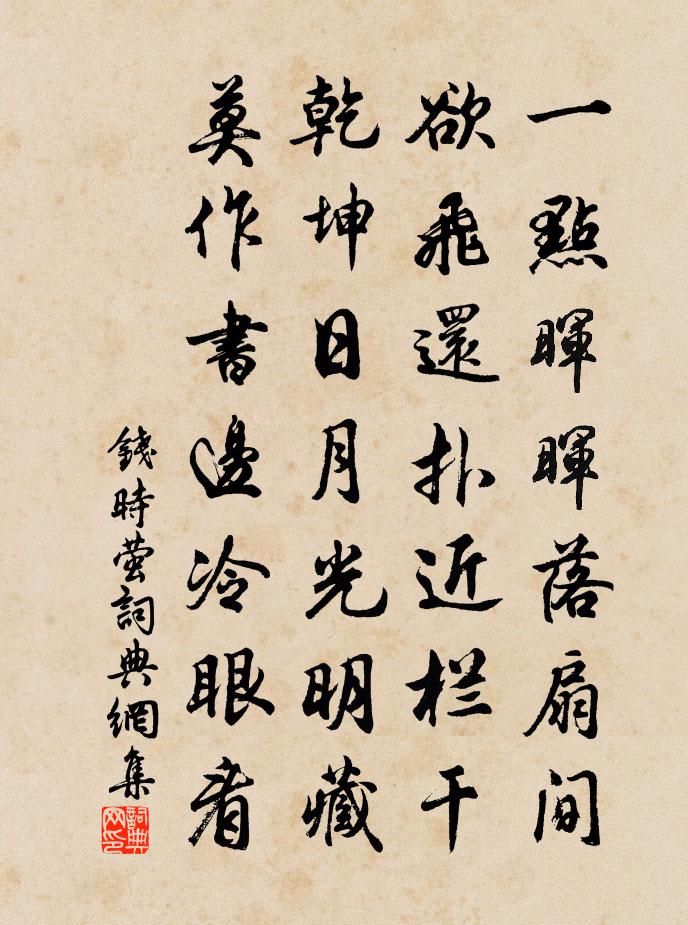 一點暉暉落扇間
欲飛還扑近栏干
乾坤日月光明藏
莫作書邊冷眼看
錢時萤詞典網集
詞典网印